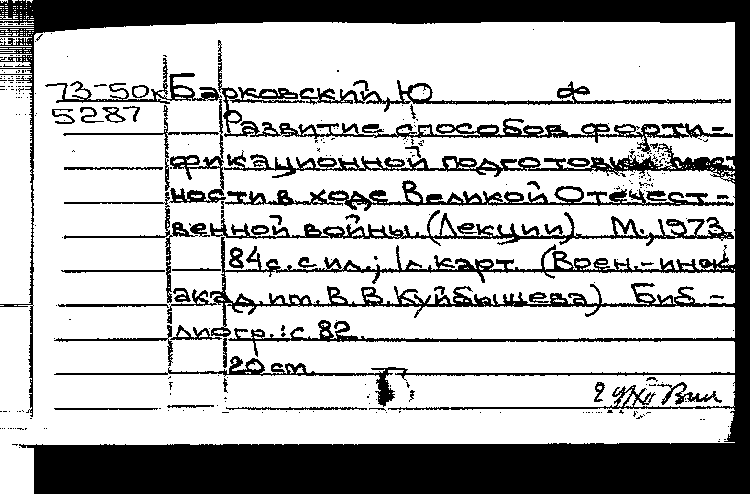 73-50к Барковский, Ю ф
5287 Развитие способов форти-
фикационной подготовки мест
ности в ходе Великой Отечест-
венной войны. (Лекции). М., 1973.
84 с. с ил.; 1 л. карт. (Воен.-инж
акад. им. В. В. Куйбышева) Биб-
лиогр.: с. 82.
20 см.
2